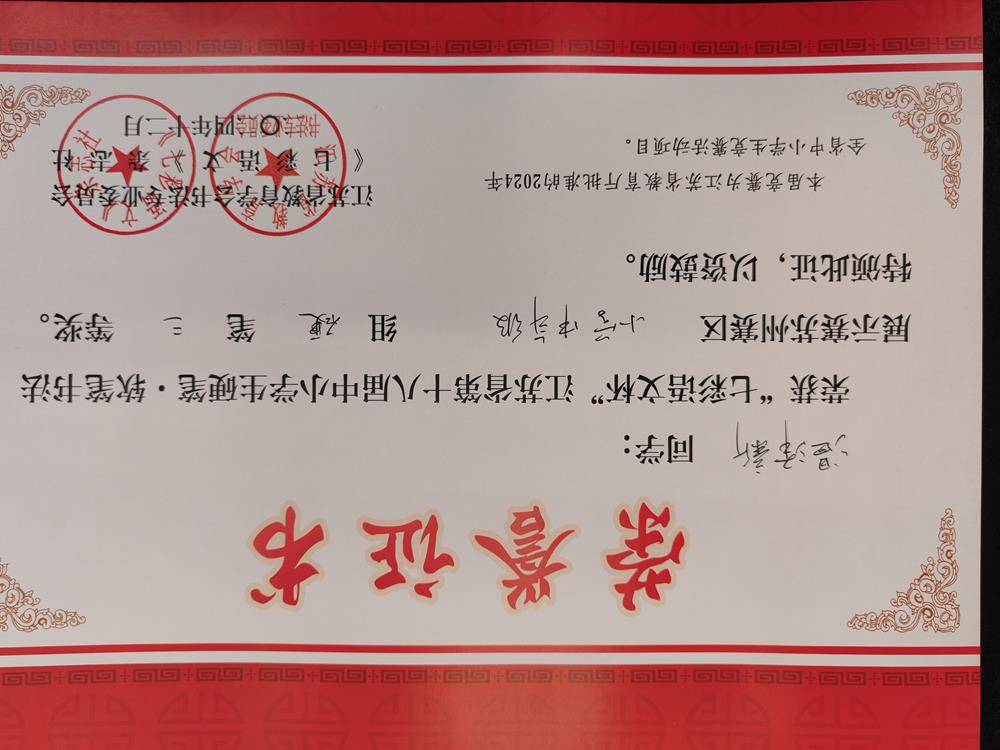 荣誉证书
同学：
荣获“七彩语文杯”江苏省第十八届中小学生硬笔·软笔书法
展示赛苏州赛区 小学中年级 组 硬 笔 三 等奖。
特颁此证，以资鼓励。
本届竞赛为江苏省教育厅批准的2024年
全省中小学生竞赛活动项目。
江苏省教育学会书法专业委员会
《七彩语文》杂志社
二〇二四年十二月
《七彩语文》杂志社